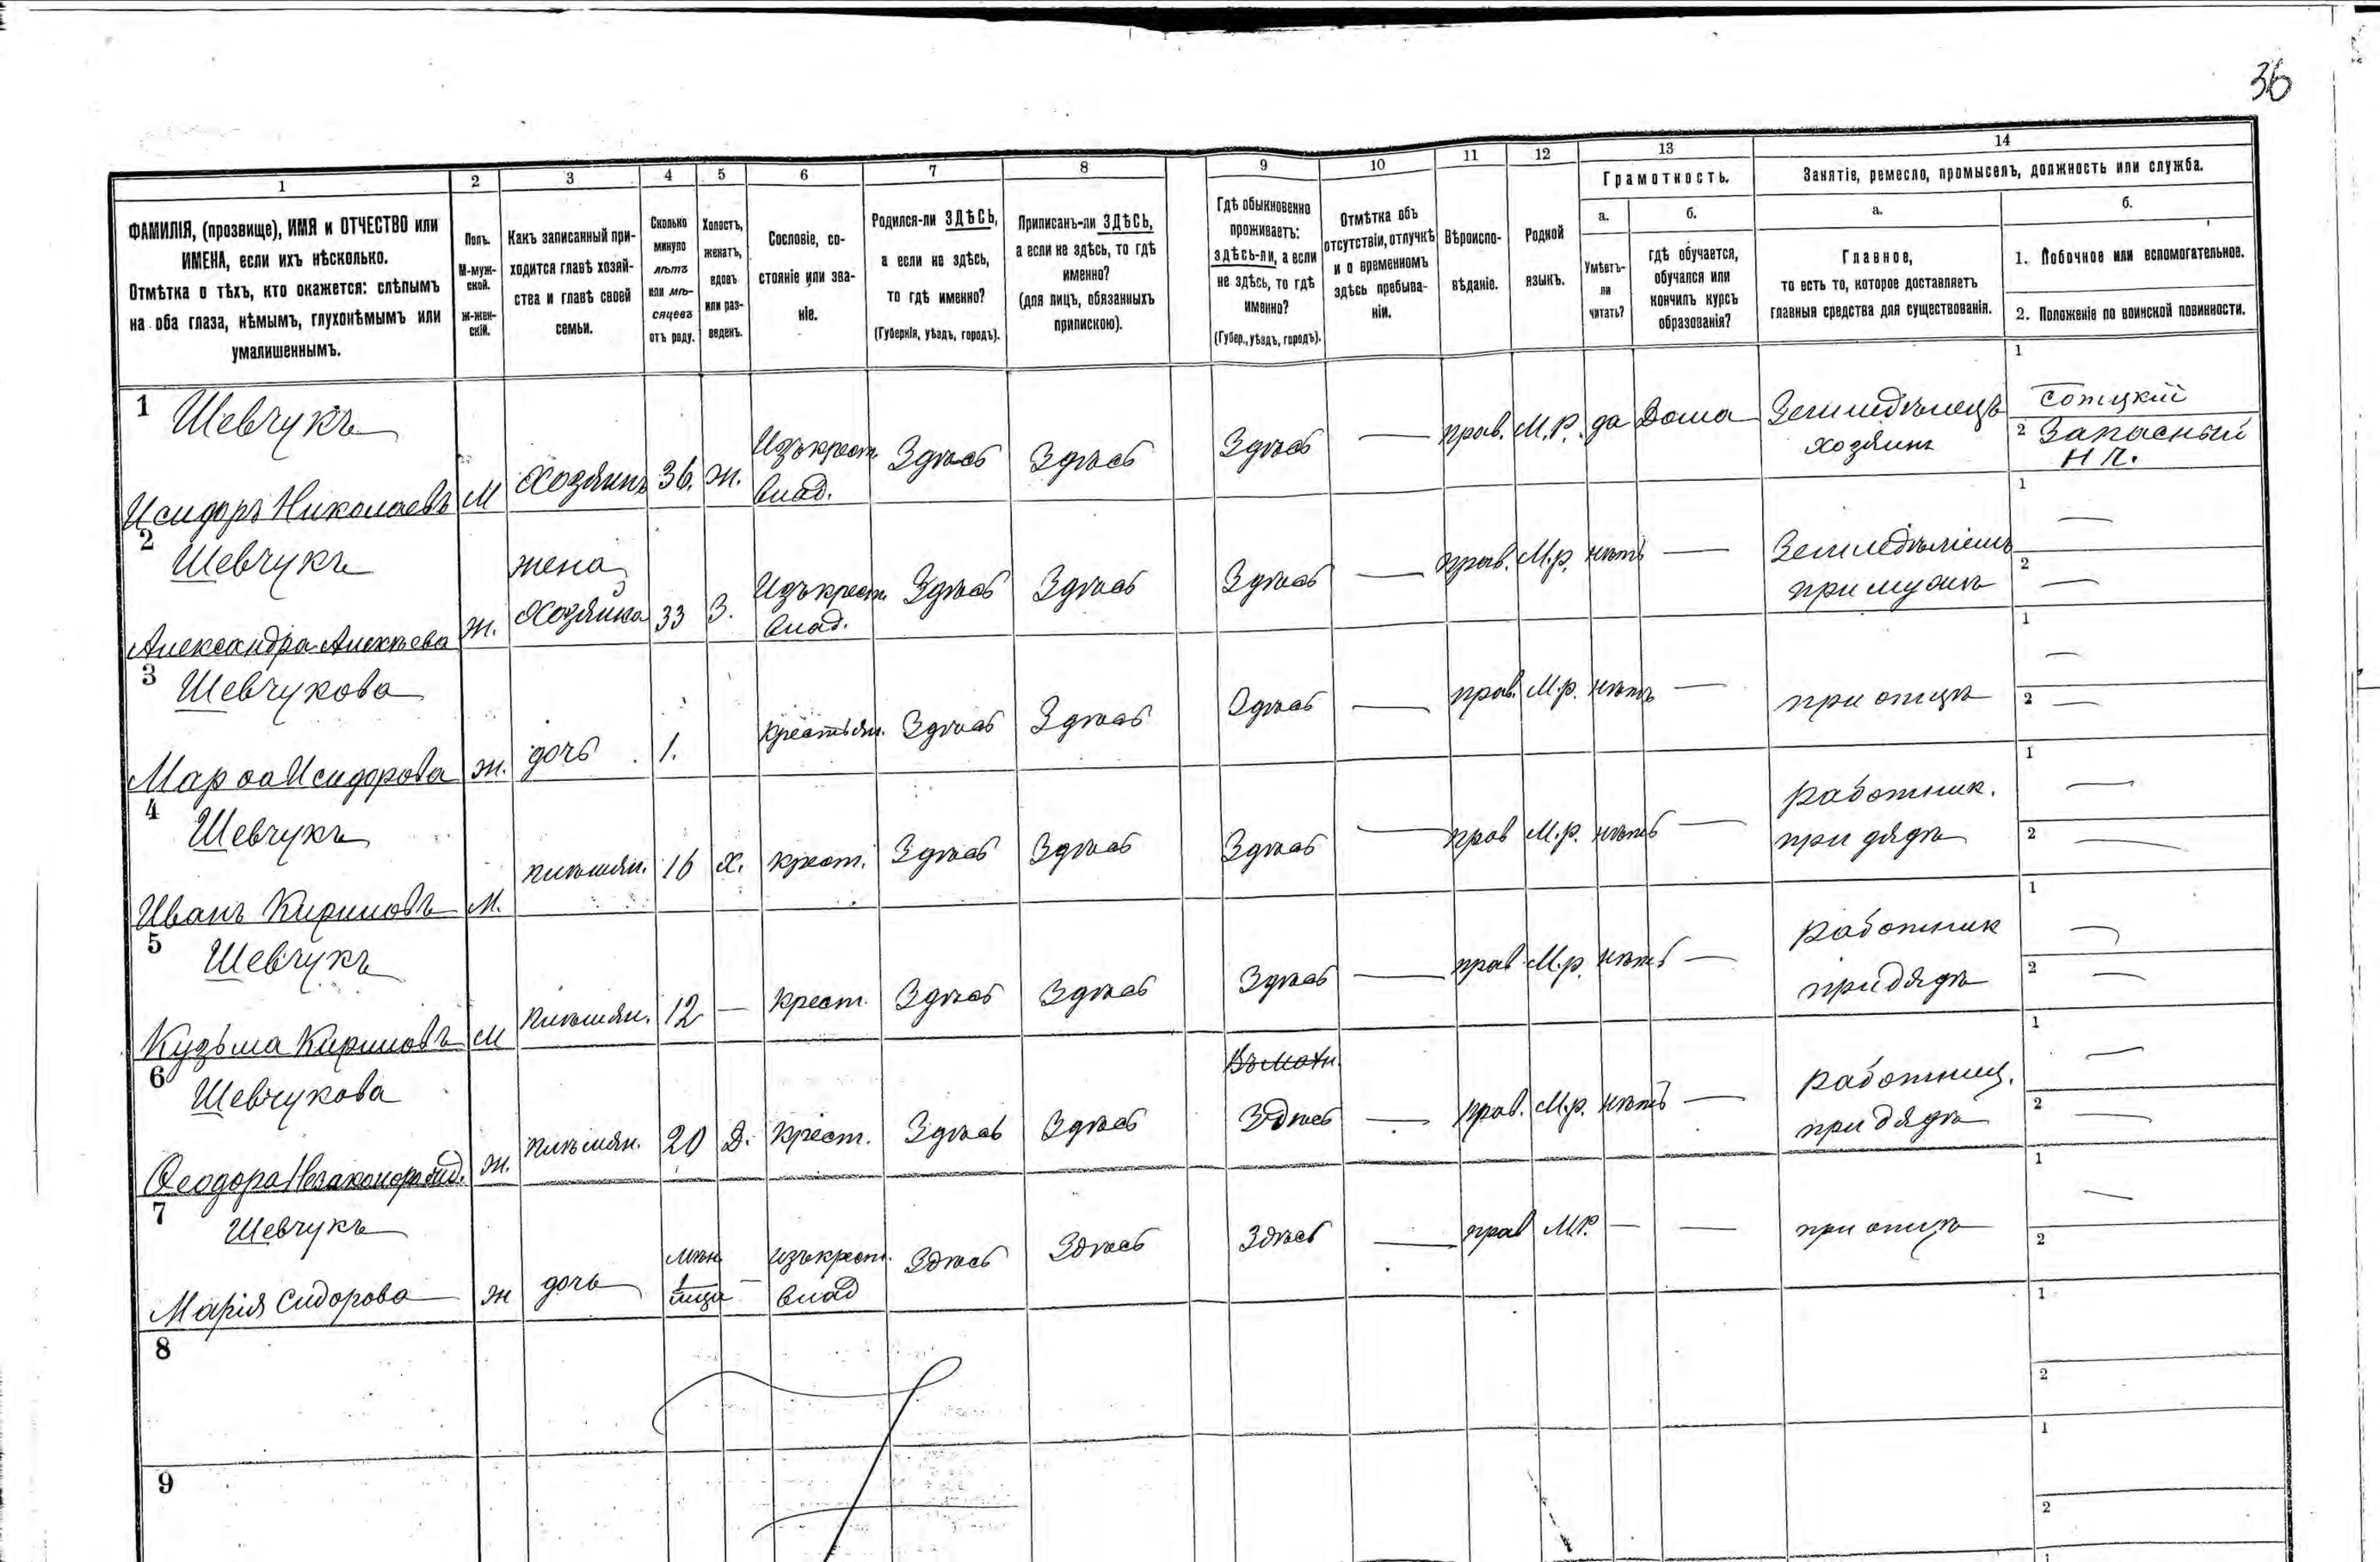 36
1
2
3
4
5
6
7
8
9
10
11
12
13
14
ФАМИЛІЯ, (прозвище), ИМЯ и ОТЧЕСТВО или
ИМЕНА, если ихъ нѣсколько.
Отмѣтка о тѣхъ, кто окажется: слѣпымъ
на оба глаза, нѣмымъ, глухонѣмымъ или
умалишеннымъ.
Полъ.
М-муж-
ской.
Ж-жен-
скій.
Какъ записанный при-
ходится главѣ хозяй-
ства и главѣ своей
семьи.
Сколько
минуло
лѣтъ
или мѣ-
сяцевъ
отъ роду.
Холостъ,
женатъ,
вдовъ
или раз-
веденъ.
Сословіе, со-
стояніе или зва-
ніе.
Родился-ли ЗДѢСЬ,
а если не здѣсь,
то гдѣ именно?
(Губернія, уѣздъ, городъ).
Приписанъ-ли ЗДѢСЬ,
а если не здѣсь, то гдѣ
именно?
(для лицъ, обязанныхъ
припискою).
Гдѣ обыкновенно
проживаетъ:
здѣсь-ли, а если
не здѣсь, то гдѣ
именно?
(Губер., уѣздъ, городъ).
Отмѣтка объ
отсутствіи, отлучкѣ
и о временномъ
здѣсь пребыва-
ніи.
Вѣроиспо-
вѣданіе.
Родной
языкъ.
Грамотность.
а.
Умѣетъ-
ли
читать?
б.
гдѣ обучается,
обучался или
кончилъ курсъ
образованія?
Занятіе, ремесло, промыселъ, должность или служба.
а.
Главное,
то есть то, которое доставляетъ
главныя средства для существованія.
б.
1. Побочное или вспомогательное.
2. Положеніе по воинской повинности.
1 Шевчукъ
Исидоръ Николаевъ
М
Хозяинъ
36.
ж.
Изъкрест.
влад.
Здѣсь
Здѣсь
Здѣсь
—
прав.
М.Р.
да
Дома
Земледѣлецъ
хозяинъ
1 Сотцкій
2 Запасный
Н П.
2 Шевчукъ
Александра Алексѣева
ж.
жена
Хозяина
33
З.
Изъкрест.
влад.
Здѣсь
Здѣсь
Здѣсь
—
прав.
М.р.
нѣтъ
—
при мужѣ
1 —
2 —
3 Шевчукова
Марѳа Исидорова
ж.
дочь
1.
крестьян.
Здѣсь
Здѣсь
Здѣсь
—
прав.
М.р.
нѣтъ
—
при отцѣ
1 —
2 —
4 Шевчукъ
Иванъ Кириловъ
М.
племян.
16
х.
крест.
Здѣсь
Здѣсь
Здѣсь
—
прав
М.р.
нѣтъ
—
работник.
при дядѣ
1 —
2 —
5 Шевчукъ
Кузьма Кириловъ
М
племян.
12
—
крест.
Здѣсь
Здѣсь
Здѣсь
—
прав
М.р.
нѣтъ
—
работник
при дядѣ
1 —
2 —
6 Шевчукова
Ѳеодора Незаконорожд.
ж.
племян.
20
Д.
крест.
Здѣсь
Здѣсь
Здѣсь
—
прав.
М.р.
нѣтъ
—
работниц.
при дядѣ
1 —
2 —
7 Шевчукъ
Марія Сидорова
ж
дочь
1
—
изъкрест.
влад
Здѣсь
Здѣсь
Здѣсь
—
прав
М.Р.
—
—
при отцѣ
1 —
2
8
1
2
9
1
2
1